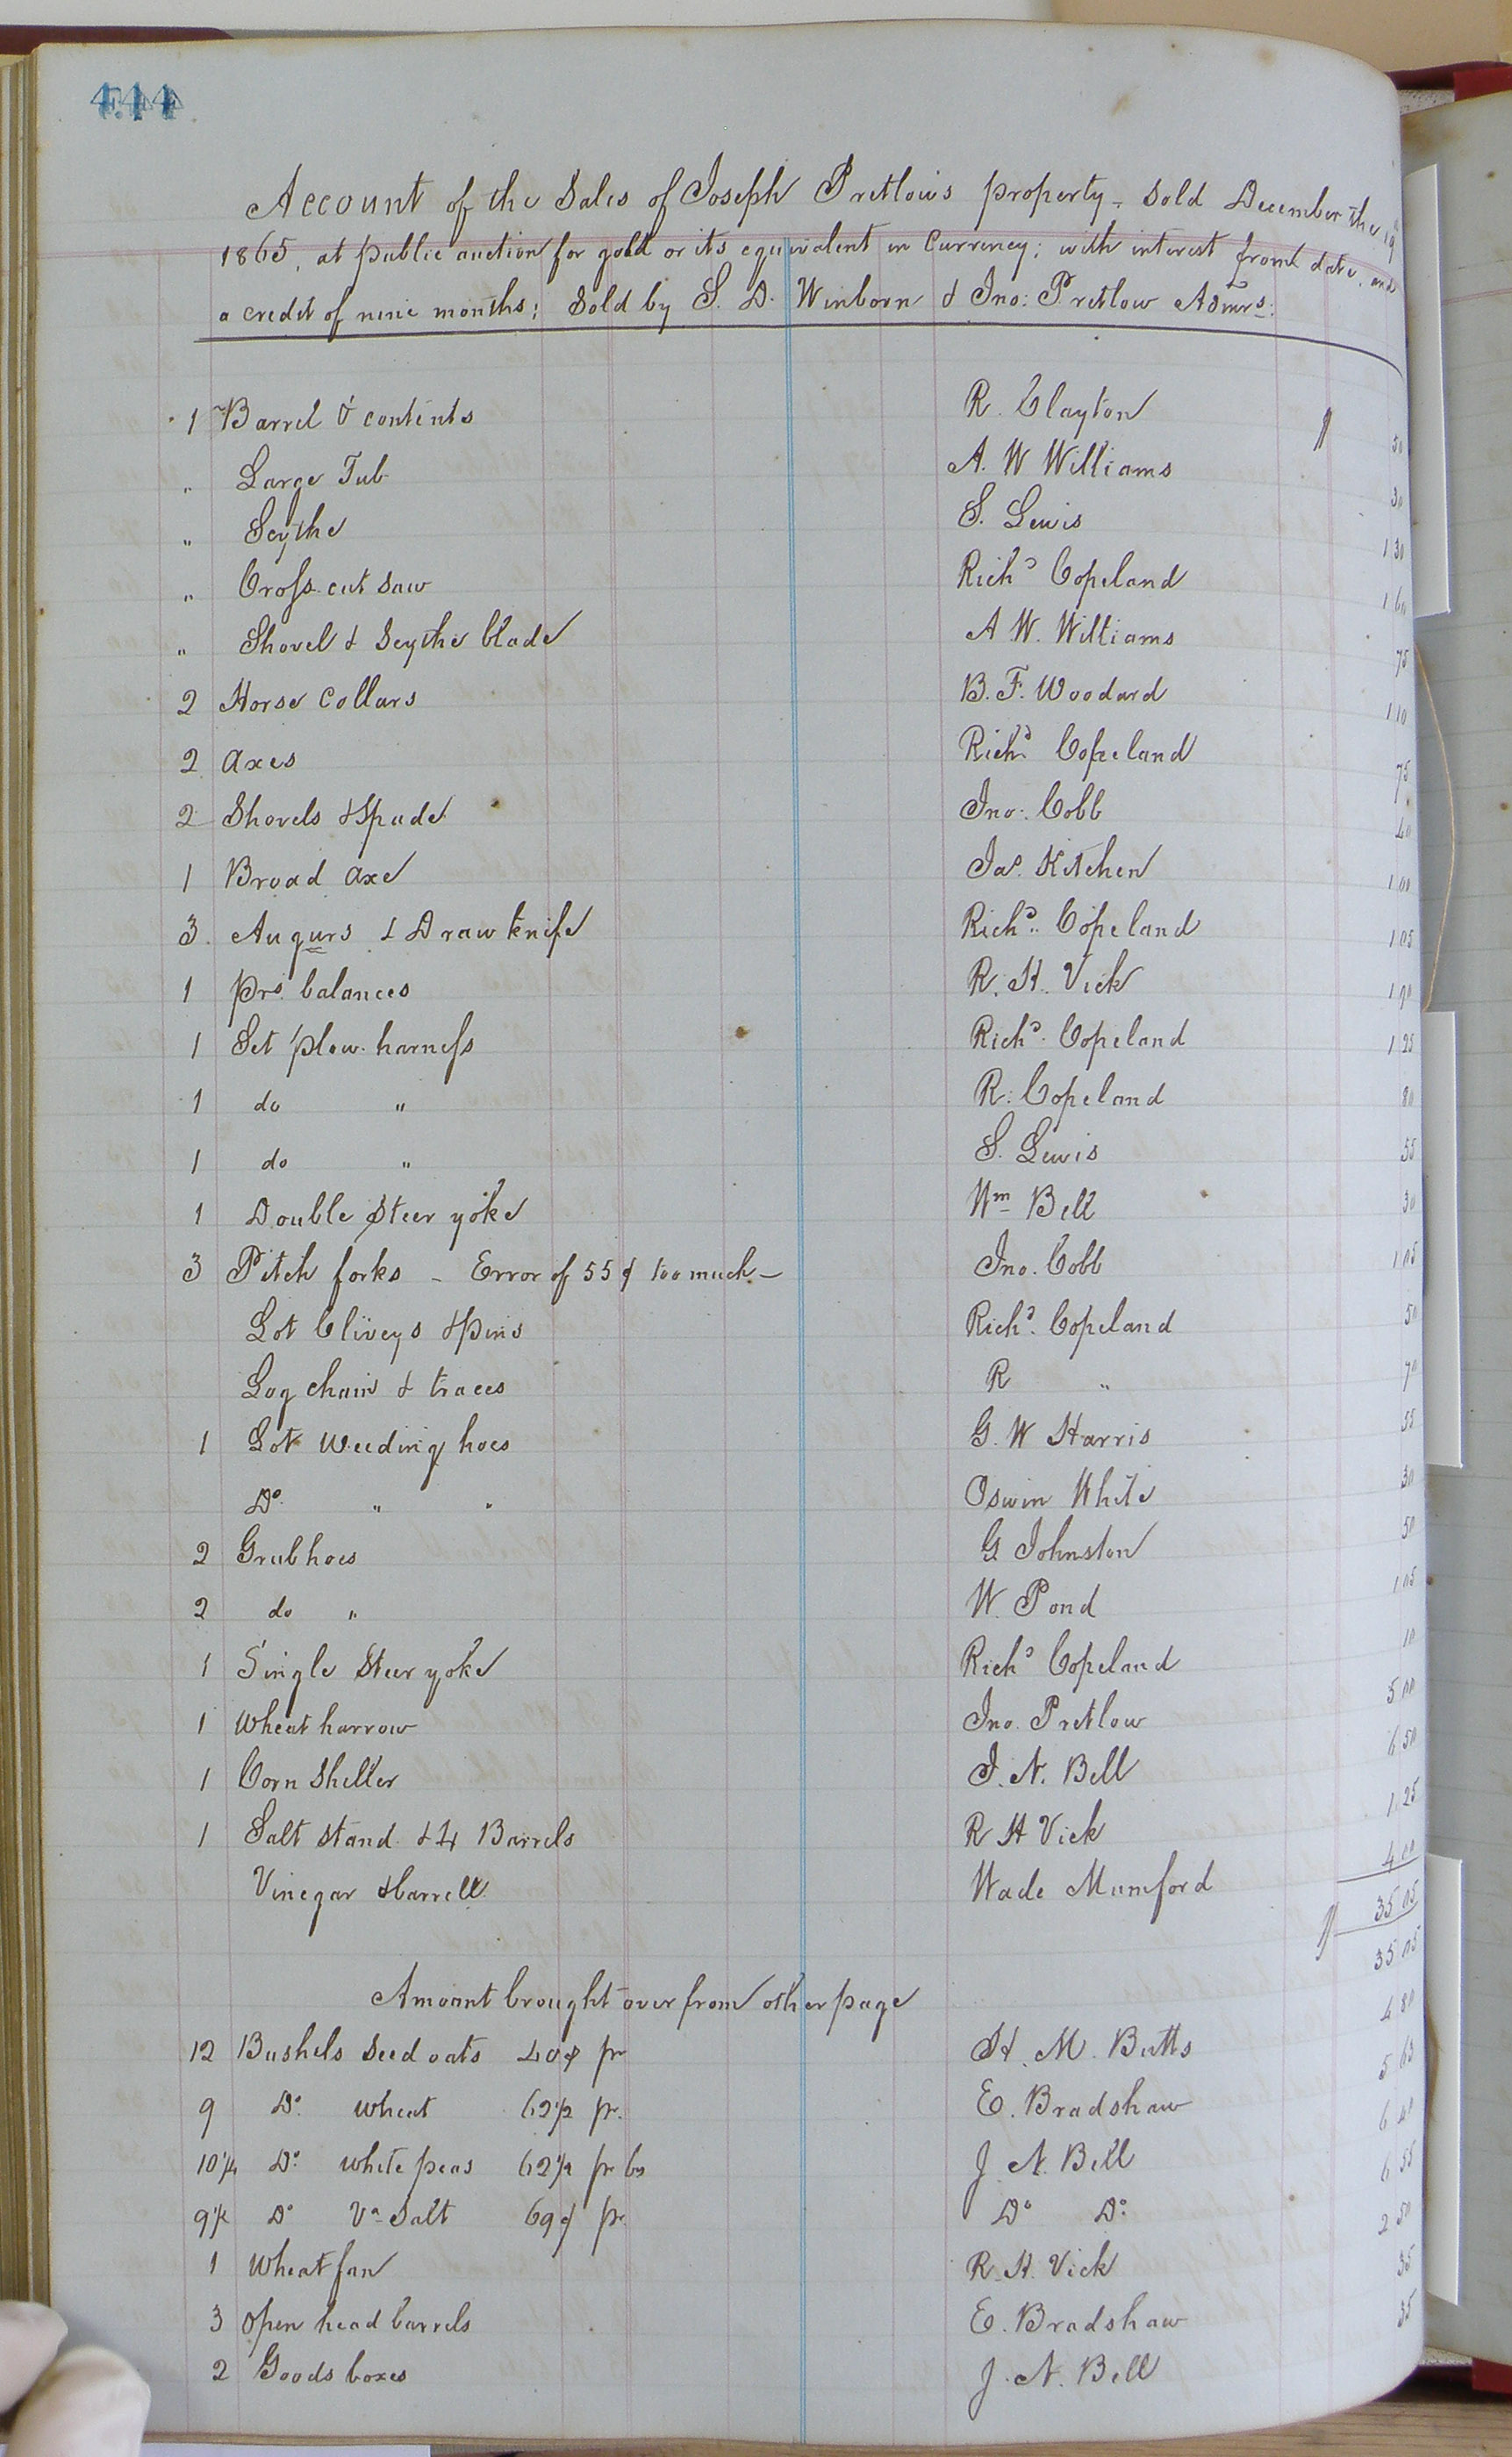 444
Account of the Sales of Joseph Pretlow's property - Sold December the 19
1865, at public auction for gold or its equivalent in Currency; with interest from date, and
a credit of nine months; Sold by S. D. Winborn & Jno: Pretlow Admrs:
1 Barrel & contents R. Clayton $ 50
" Large Tub A. W Williams 30
" Scythe S. Lewis 1 30
" Cross-cut Saw Richd Copeland 1 60
" Shovel & Scythe blade A W. Williams 75
2 Horse Collars B. F. Woodard 1 10
2 axes Richd Copeland 75
2 Shovels & Spade Jno. Cobb 40
1 Broad axe Jas. Kitchen 1 00
3 Augurs & Draw knife Richd. Copeland 1 05
1 prs. balances R. H. Vick
1 Set plow harness Richd. Copeland 1 25
1 do " R. Copeland 80
1 do " S. Lewis 55
1 Double Steer yoke Wm Bell 30
3 Pitch forks - Error of 55¢ too much - Jno. Cobb 1 05
Lot Cliveys & pins Richd. Copeland 50
Log chain & traces R " 70
1 Lot Weeding hoes G. W Harris 55
Do. " " Oswin White 30
2 Grubhoes G Johnston 50
2 do " W. Pond 1 05
1 Single Steer yoke Richd Copeland 10
1 Wheat harrow Jno. Pretlow 5 00
1 Corn Sheller J. N. Bell 6 50
1 Salt stand & 4 Barrels R H Vick 1 25
Vinegar & barrell Wade Mumford 4 00
$ 35 05
Amount brought over from other page 35 05
12 Bushels Seed oats 40¢ pr H. M. Butts 4 80
9 Do. wheat 62½ pr. E. Bradshaw 5 63
10¼ Do. white peas 62½ pr bs J. N. Bell 6 40
9½ Do Va Salt 69¢ pr. Do Do. 6 55
1 Wheat fan R. H. Vick 2 50
3 open head barrels E. Bradshaw 35
2 Goods boxes J. N. Bell 35